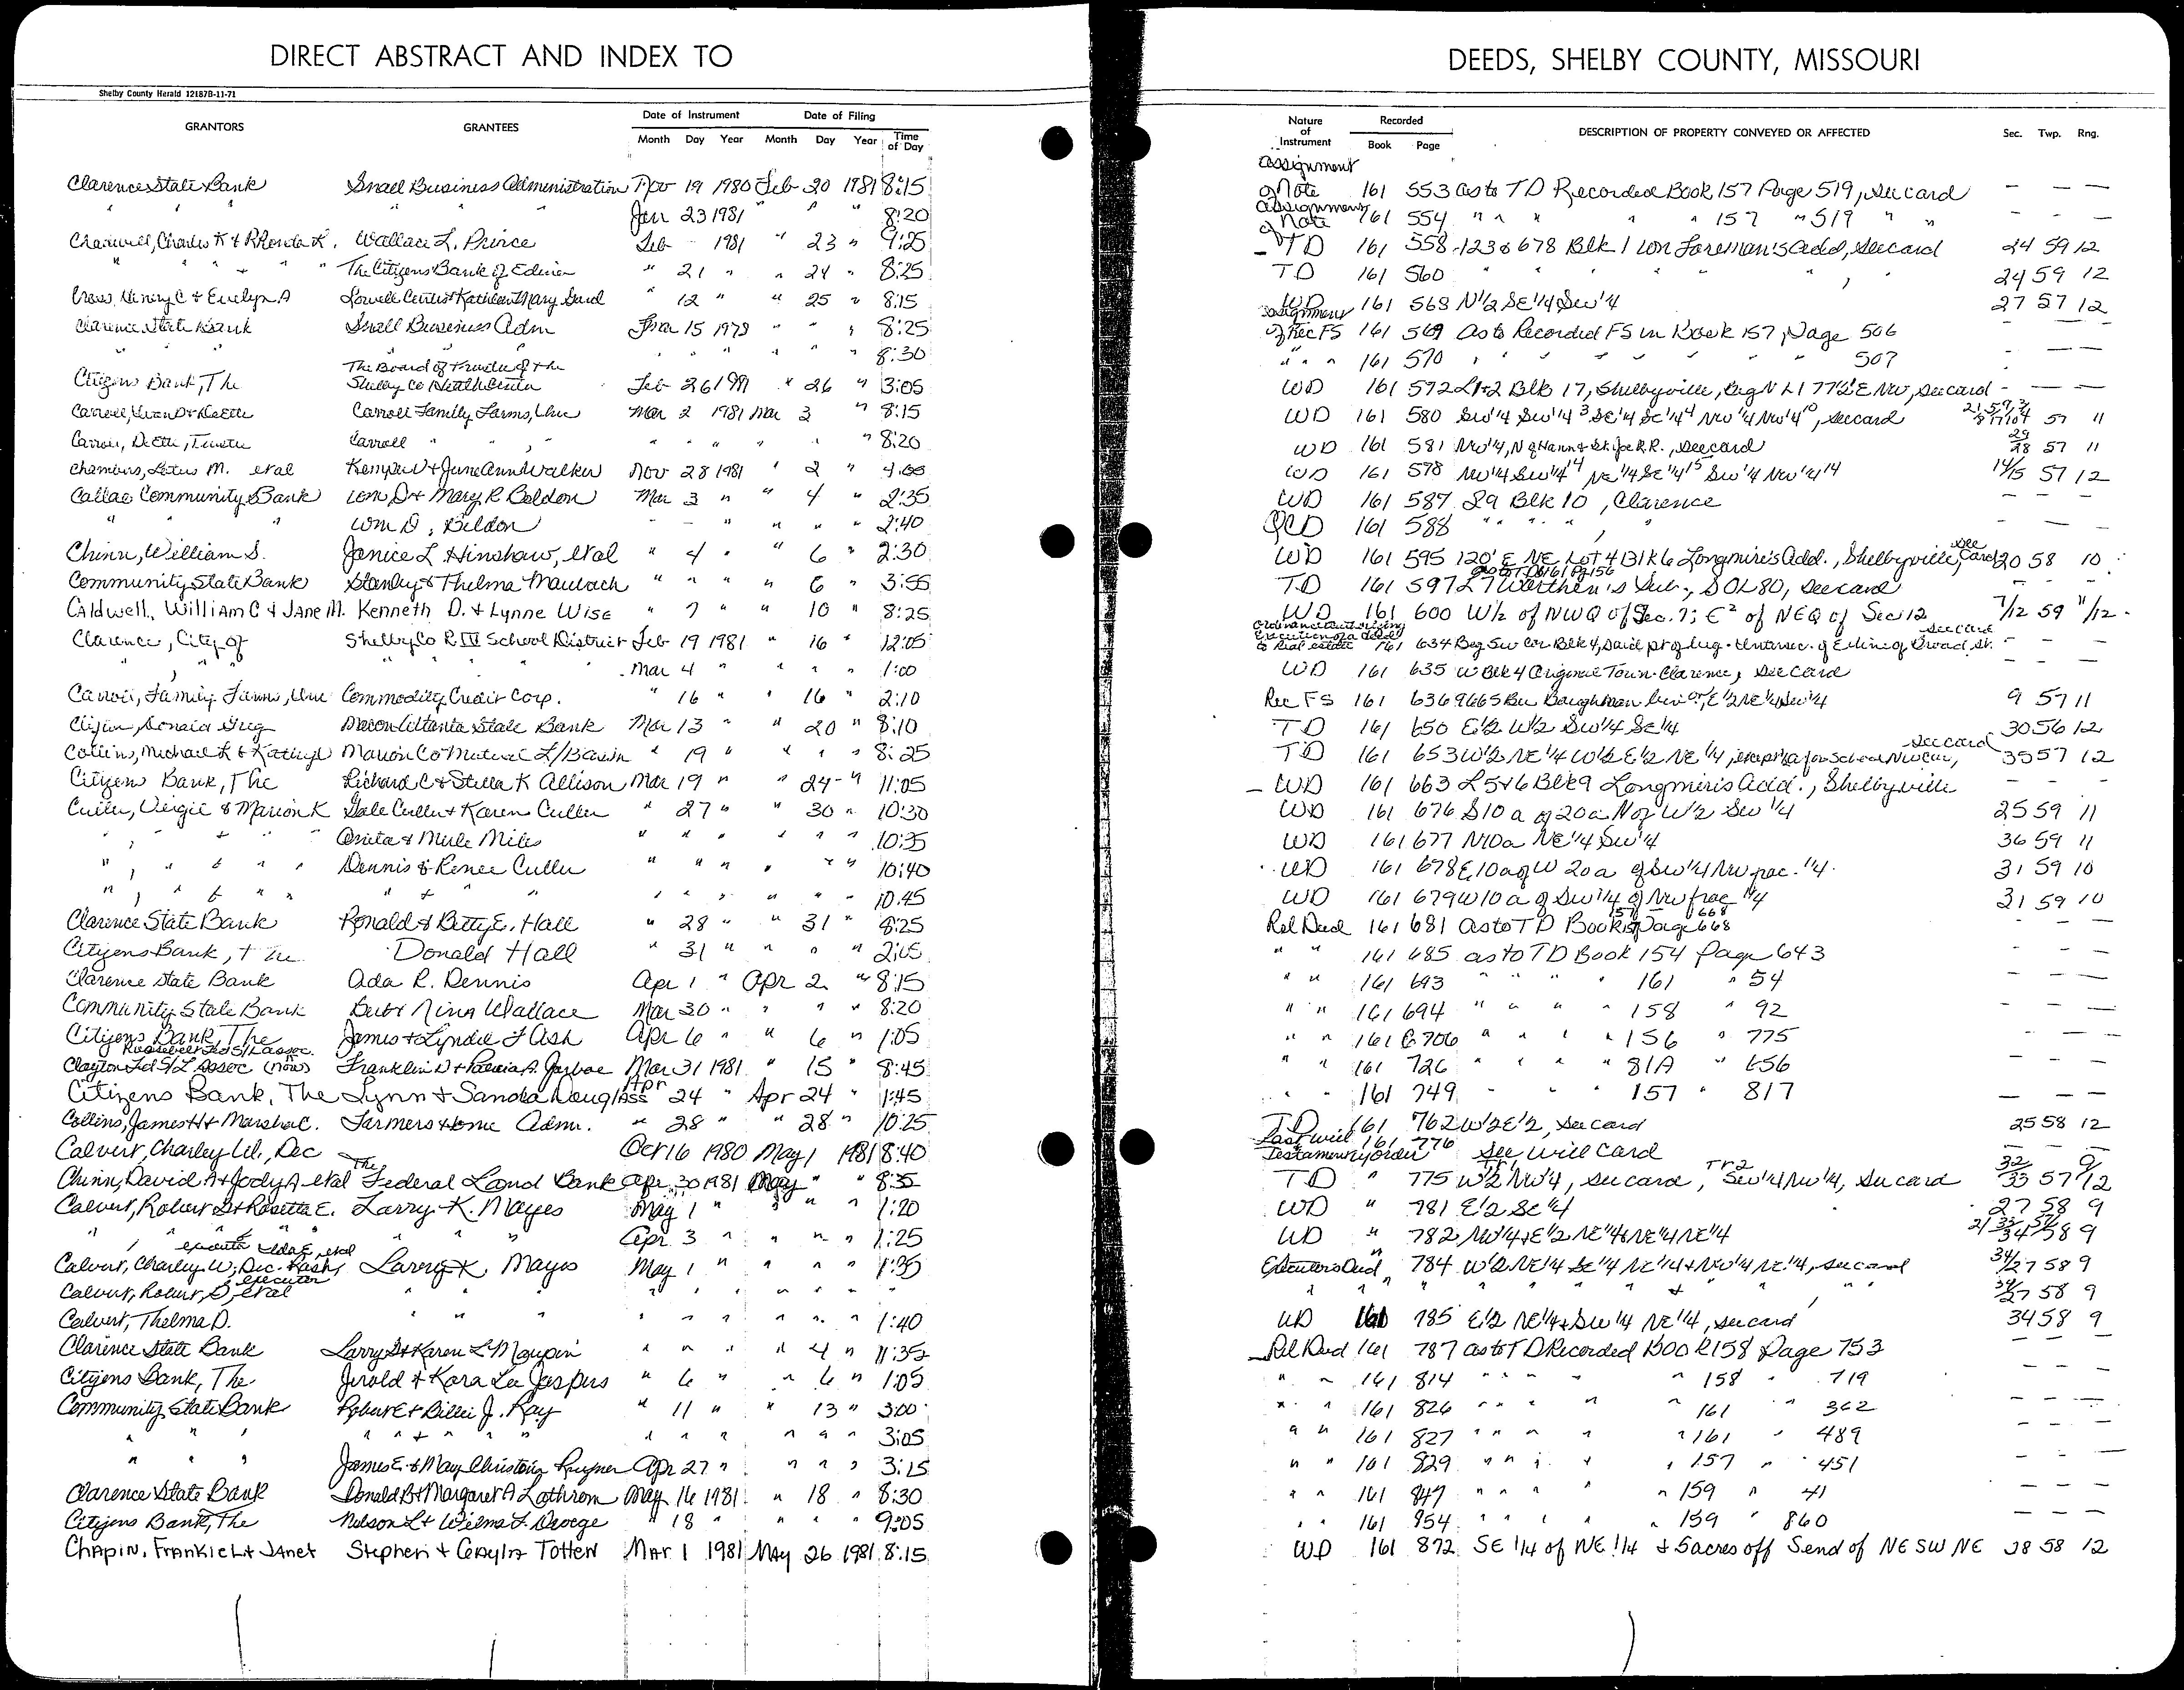 DIRECT ABSTRACT AND INDEX TO
Shelby County Herald 12187B-11-71
GRANTORS GRANTEES Date of Instrument Date of Filing
Month Day Year Month Day Year Time of Day
Clarence State Bank Small Business Administration Nov 19 1980 Feb 20 1981 8:15
" " " " Jan 23 1981 " " " 8:20
Charles K + Rhonda K. Wallace L. Prince Feb - 1981 " 23 " 9:25
" " + " " The Citizens Bank of Edina " 21 " " 24 " 8:25
Henry C + Evelyn A Lowell Curtis + Kathleen Mary " 12 " " 25 " 8:15
Clarence State Bank Small Business Adm 15 1979 " " " 8:25
" " " " " " " " " 8:30
The Board of Trustees of the
Citizens Bank, The Shelby Co Health Center Feb 26 1981 " 26 " 3:05
Carroll, Carroll Family Farms, Inc Mar 2 1981 Mar 3 " 8:15
Carroll " " " " " " " " 8:20
Chambers, M. etal + June Ann Walker Nov 28 1981 " 2 " 4:00
Callao Community Bank Wm D + Mary R Beldon Mar 3 " " 4 " 2:35
" " Wm D, Beldon - - " " " " 2:40
Chinn, William S. Janice L. Hinshaw, etal " 4 " " 6 " 2:30
Community State Bank Stanley + Thelma " " " " 6 " 3:55
Caldwell, William C & Jane M. Kenneth D. & Lynne Wise " 7 " " 10 " 8:25
Clarence, City of Shelby Co R IV School District Feb 19 1981 " 16 " 12:05
" " " " " " Mar 4 " " " " 1:00
Family Farms, Inc Commodity Credit Corp. " 16 " " 16 " 2:10
Donald Greg Macon Atlanta State Bank Mar 13 " " 20 " 8:10
Collins, Michael R & Kathryn Marion Co Mutual " 19 " " " " 8:25
Citizens Bank, The Richard C + Stella K Allison Mar 19 " " 24 " 11:05
Virgil & Marion K Gale Culler + Karen Culler " 27 " " 30 " 10:30
" " + " " Anita & Miles " " " " " " 10:35
" " " & " " Dennis & Renee Culler " " " " " " 10:40
" " " & " " " + " " " " " " " 10:45
Clarence State Bank Ronald & Betty E. Hall " 28 " " 31 " 8:25
Citizens Bank, The Donald Hall " 31 " " " " 2:05
Clarence State Bank Ada R. Dennis Apr 1 " Apr 2 " 8:15
Community State Bank + Nina Wallace Mar 30 " " " " 8:20
Citizens Bank, The James + F Ash Apr 6 " " 6 " 1:05
Roosevelt Fed S/L assoc.
Clayton Fed S/L Assoc (now) Franklin D + Patricia A. Mar 31 1981 " 15 " 8:45
Citizens Bank, The Lynn + Sandra Douglass Apr 24 " Apr 24 " 1:45
Collins, James H + Marsha C. Farmers Home Adm. " 28 " " 28 " 10:25
Calvert, Charley W., Dec Oct 16 1980 May 1 1981 8:40
Chinn, David A + Jody A etal The Federal Land Bank Apr 30 1981 May " " 8:35
Calvert, Robert D + Rosetta E. Larry K. Mayes May 1 " " " " 1:20
" " " " " " Apr 3 " " " " 1:25
Calvert, Charley W, Dec. Larry K. Mayes May 1 " " " " 1:35
Calvert, Robert, D, etal executor " " " " " " " " "
Calvert, Thelma D. " " " " " " " " 1:40
Clarence State Bank Larry D + Karen L Maupin " " " " 4 " 11:35
Citizens Bank, The Jerold + Kara Lee Jaspers " 6 " " 6 " 1:05
Community State Bank Robert E + Billie J. Ray " 11 " " 13 " 3:00
" " " " " + " " " " " " " " " 3:05
" " " James E. & Mary Christine Apr 27 " " " " 3:15
Clarence State Bank Donald B + Margaret A Lathrom May 16 1981 " 18 " 8:30
Citizens Bank, The Nelson L + Wilma F. Droege " 18 " " " " 9:05
Chapin, Frankie L + Janet Stephen + Totten Mar 1 1981 May 26 1981 8:15
DEEDS, SHELBY COUNTY, MISSOURI
Nature of Instrument Recorded DESCRIPTION OF PROPERTY CONVEYED OR AFFECTED Sec. Twp. Rng.
Book Page
Assignment
of Note 161 553 as to TD Recorded Book 157 Page 519, see card - - -
Assignment of Note 161 554 " " " " " 157 " 519 " " - - -
TD 161 558 123 & 678 Blk 1 Wm Foreman's Add, see card 24 59 12
TD 161 560 " " " " " " 24 59 12
WD 161 563 N1/2 SE1/4 SW1/4 27 57 12
Assignment of Rec FS 161 569 as to Recorded FS in Book 157, Page 506 - - -
" " " 161 570 " " " " " " " 507 - - -
WD 161 572 L1+2 Blk 17, Shelbyville, Beg N L1 77½' E NW, see card - - -
WD 161 580 SW1/4 SW1/4 3 SE1/4 SE1/4 4 NW1/4 NW1/4 10, see card 57 11
WD 161 581 NW1/4, N of Hann & St. Joe R.R., see card 29 28 57 11
WD 161 578 NW1/4 SW1/4 14 NE1/4 SE1/4 15 SW1/4 NW1/4 14 14/15 57 12
WD 161 587 L9 Blk 10, Clarence - - -
QCD 161 588 " " " " , " - - -
WD 161 595 120' E NE Lot 4 Blk 6 Longmire's Add., Shelbyville, see card 20 58 10
as to TD 161 Pg 156
TD 161 597 L7 Worthen's Sub., S OL 80, see card - - -
WD 161 600 W½ of NWQ of Sec. 7; E² of NEQ of Sec 12 7/12 59 11/12
Ordinance authorizing Execution of a deed to Real estate 161 634 Beg SW Cor Blk 4, said pt of beg. Intersec. of E line of Broad St. see card - - -
WD 161 635 W Blk 4 Original Town Clarence, see card - - -
Rec FS 161 636 9665 Bu E1/2 NE1/4 SW1/4 9 57 11
TD 161 650 E1/2 W1/2 SW1/4 SE1/4 30 56 12
TD 161 653 W1/2 NE1/4 W1/2 E1/2 NE1/4, except for School NW cor, see card 35 57 12
WD 161 663 L5+6 Blk 9 Longmire's Add., Shelbyville - - -
WD 161 676 S10 a of 20a N of W1/2 SW1/4 25 59 11
WD 161 677 N10a NE1/4 SW1/4 36 59 11
WD 161 678 E10a of W 20a of SW1/4 NW frac. 1/4 31 59 10
WD 161 679 W10 a of SW1/4 of NW frac 1/4 31 59 10
Rel Deed 161 681 as to TD Book 157 Page 668 - - -
" " 161 685 as to TD Book 154 Page 643 - - -
" " 161 693 " " " 161 " 54 - - -
" " 161 694 " " " " 158 " 92 - - -
" " 161 706 " " " " 156 " 775 - - -
" " 161 726 " " " " 81A " 656 - - -
" " 161 749 " " " 157 " 817 - - -
TD 161 762 W1/2 E1/2, see card 25 58 12
Last will 161 776
Testamentary order See will card - - -
TD " 775 Tr 1 W1/2 NW1/4, see card, Tr 2 SW1/4 NW1/4, see card 32/33 57 9/12
WD " 781 E1/2 SE1/4 27 58 9
WD " 782 NW1/4 + E1/2 NE1/4 + NE1/4 NE1/4 58 9
Executors Deed " 784 W1/2 NE1/4 SE1/4 NE1/4 + NW1/4 NE1/4, see card 34/27 58 9
" " " " " " " + " " " 34/27 58 9
WD 161 785 E1/2 NE1/4 + SW1/4 NE1/4, see card 34 58 9
Rel Deed 161 787 as to TD Recorded Book 158 Page 753 - - -
" " 161 814 " " " " " 158 " 719 - - -
" " 161 826 " " " " " 161 " 362 - - -
" " 161 827 " " " " " 161 " 489 - - -
" " 161 829 " " " " " 157 " 451 - - -
" " 161 847 " " " " " 159 " 41 - - -
" " 161 854 " " " " " 159 " 860 - - -
WD 161 872 SE 1/4 of NE 1/4 & 5 acres off S end of NE SW NE 28 58 12